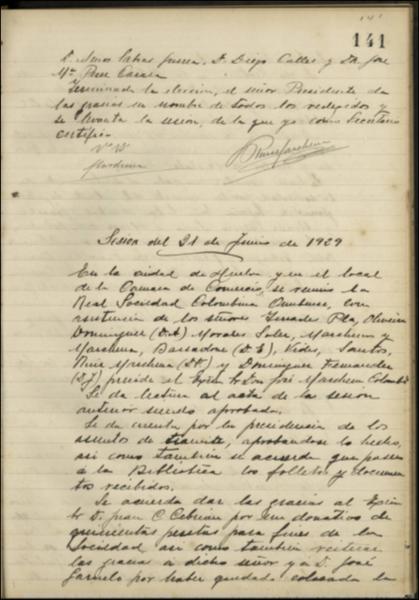 141
D. Jenos Cabas Guerra, D. Diego Calles y D. José
Mª Perez Carasa
Terminada la elección, el señor Presidente da
las gracias en nombre de todos los reelegidos y
se levanta la sesión, de la que yo como Secretario
certifico.
Vº Bº
Marchena
Sesion del 21 de Junio de 1929
En la ciudad de Huelva y en el local
de la Camara de Comercio, se reunio la
Real Sociedad Colombina Onubense, con
asistencia de los señores Terrades Pla, Oliveira
Dominguez (D. A.) Morales Soler, Marchena y
Marchena, Barradone (D. E.), Vides, Santos,
Ruiz Marchena (D. ) y Dominguez Fernandez
(D. J.) preside el Excmo Sr Don José Marchena Colombo
Se da lectura al acta de la sesion
anterior siendo aprobada.
Se da cuenta por la presidencia de los
asuntos de tramite, aprobandose lo hecho,
asi como tambien se acuerda que pasen
á la Biblioteca los folletos y documen
tos recibidos.
Se acuerda dar las gracias al Excmo
Sr D. Juan C. Cebrian por un donativo de
quinientas pesetas para fines de la
Sociedad asi como tambien reiterar
las gracias a dicho señor y a D. José
Jarnelo por haber quedado colocada la